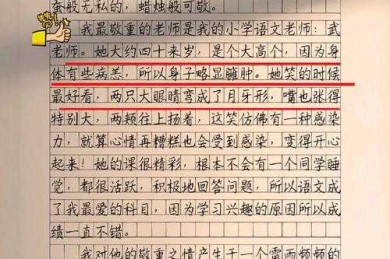 奈般无私的，蜡烛般可敬。
我最敬重的老师是我的小学语文老师：武
老师。她大约四十来岁，是个大高个，因为身
体有些病恙，所以身子略显臃肿。她笑的时候
最好看，两只大眼睛弯成了月牙形，嘴也张得
特别大，两颊往上扬着，这笑仿佛有一种感染
力，就算心情再糟糕也会受到感染，变得开心
起来！她的课很精彩，根本不会有一个同学睡
觉，都很活跃，积极地回答问题，所以语文成
了我最爱的科目，因为学习兴趣的原因所以成
绩一直不错。
我对他的敬重之情产生于一个雷雨频频的